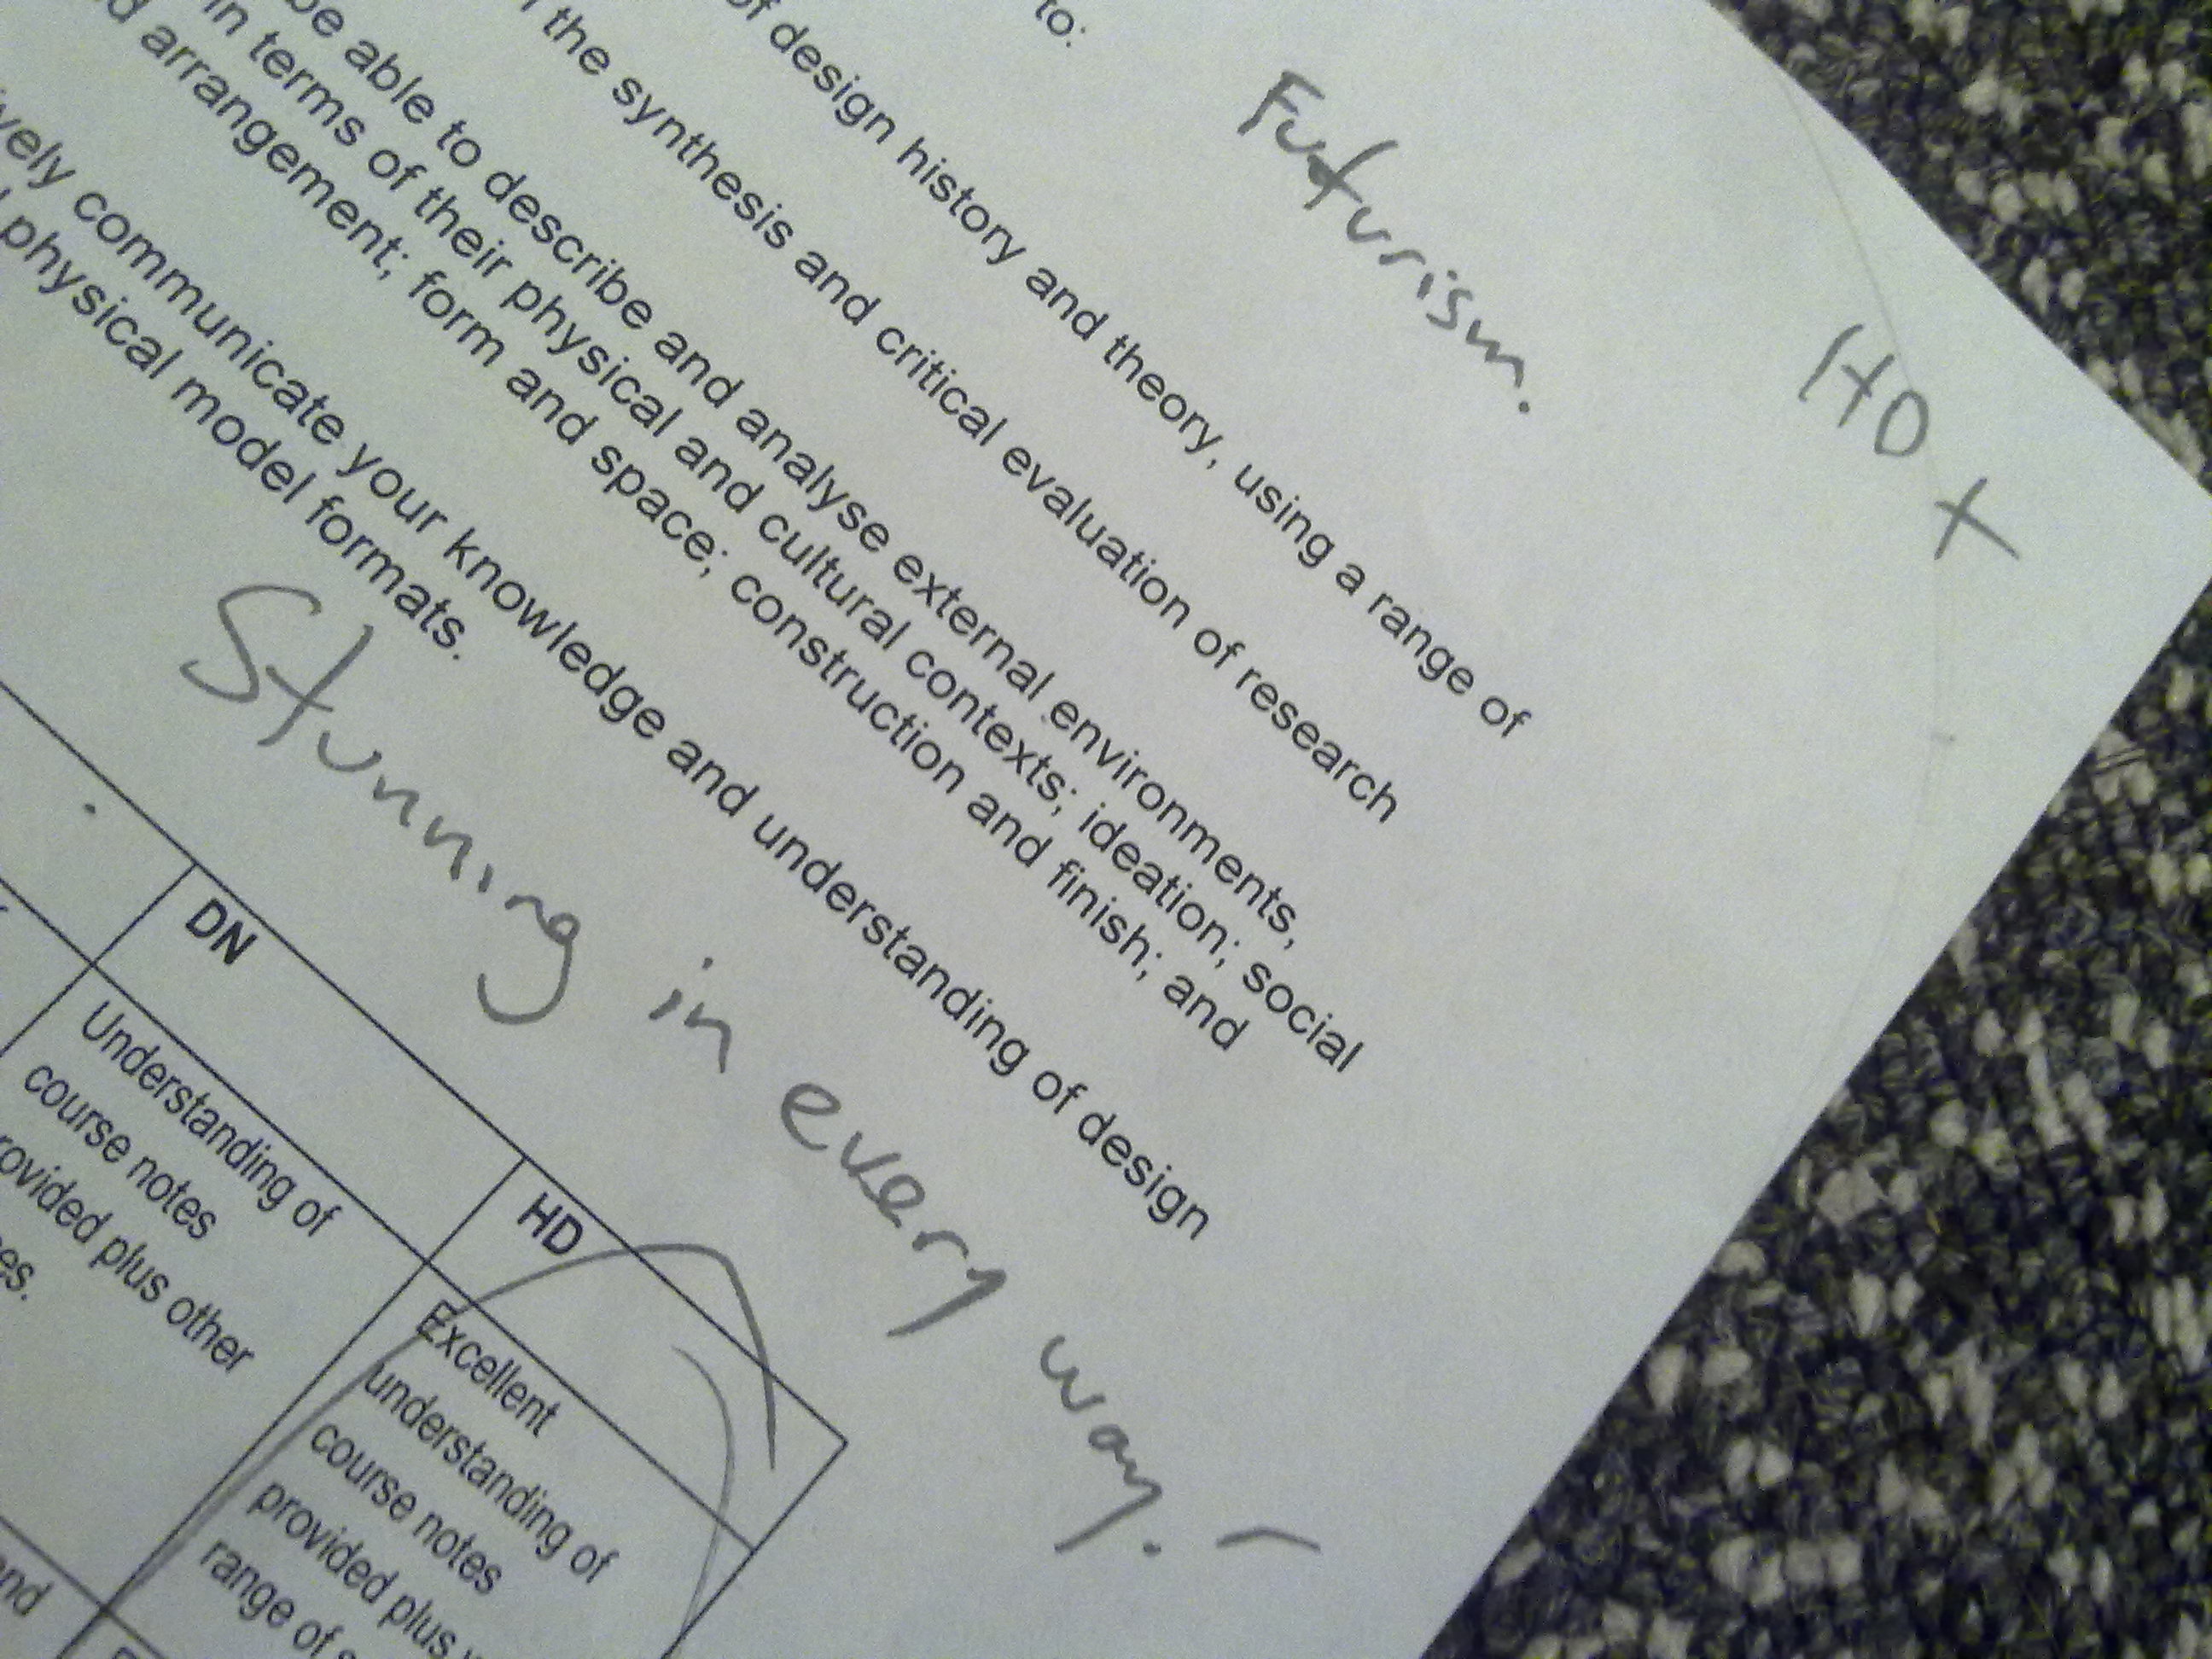 Futurism.
HD +
to:
of design history and theory, using a range of
the synthesis and critical evaluation of research
be able to describe and analyse external environments,
in terms of their physical and cultural contexts; ideation; social
arrangement; form and space; construction and finish; and
communicate your knowledge and understanding of design
physical model formats.
Stunning in every way.
DN
HD
Understanding of
course notes
plus other
Excellent
understanding of
course notes
provided plus
range of